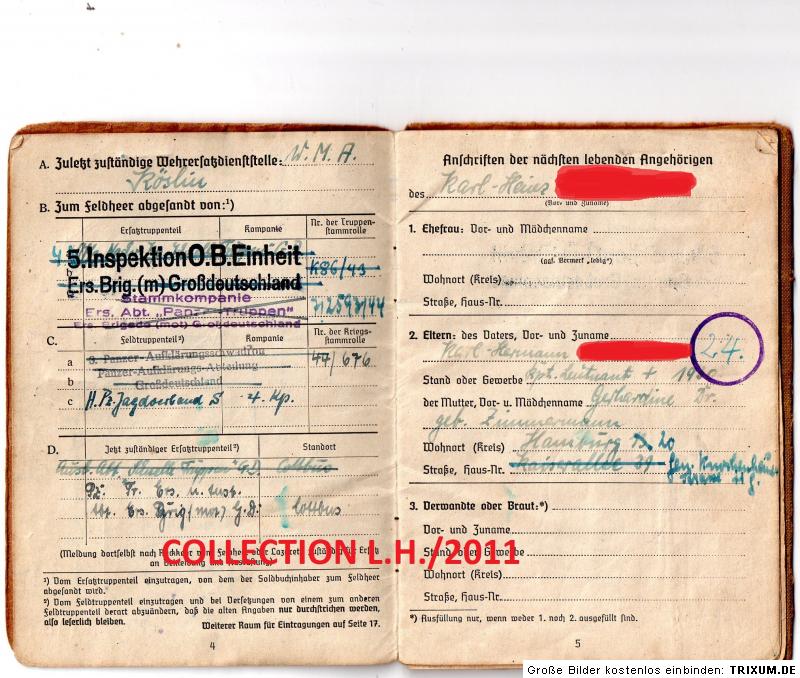 A. Zuletzt zuständige Wehrersatzdienststelle: W. M. A.
Köslin
B. Zum Feldheer abgesandt von:¹)
Ersatztruppenteil Kompanie Nr. der Truppenstammrolle
5. Inspektion O.B. Einheit
K86/43
Ers. Brig. (m) Großdeutschland
Stammkompanie
Ers. Abt. „Panz.-Truppen"
Ers. Brigade (mot) Großdeutschland
C. Feldtruppenteil²) Kompanie Nr. der Kriegsstammrolle
a 3. Panzer-Aufklärungsschwadron 47/676
Panzer-Aufklärungs-Abteilung
b Großdeutschland
c 4. Kp.
D. Jetzt zuständiger Ersatztruppenteil²) Standort
G.D. Cottbus
Pz. Tr. Ers. u. Ausb.
Ers. Brig. (mot) G.D. Cottbus
(Meldung dortselbst nach Rückkehr vom Feldheer oder Lazarett, zuständig für Ersatz
an Bekleidung und Ausrüstung)
¹) Vom Ersatztruppenteil einzutragen, von dem der Soldbuchinhaber zum Feldheer
abgesandt wird.
²) Vom Feldtruppenteil einzutragen und bei Versetzungen von einem zum anderen
Feldtruppenteil derart abzuändern, daß die alten Angaben nur durchstrichen werden,
also leserlich bleiben.
Weiterer Raum für Eintragungen auf Seite 17.
4
Anschriften der nächsten lebenden Angehörigen
des Karl-Heinz
(Vor- und Zuname)
1. Ehefrau: Vor- und Mädchenname
(ggf. Vermerk „ledig")
Wohnort (Kreis)
Straße, Haus-Nr.
2. Eltern: des Vaters, Vor- und Zuname
Karl-Hermann 24.
Stand oder Gewerbe
der Mutter, Vor- u. Mädchenname Gerhardine
geb. Zimmermann
Wohnort (Kreis) Hamburg 20
Straße, Haus-Nr. Kaiserallee
3. Verwandte oder Braut:*)
Vor- und Zuname
Stand oder Gewerbe
Wohnort (Kreis)
Straße, Haus-Nr.
*) Ausfüllung nur, wenn weder 1. noch 2. ausgefüllt sind.
5
COLLECTION L.H./2011
Große Bilder kostenlos einbinden: TRIXUM.DE